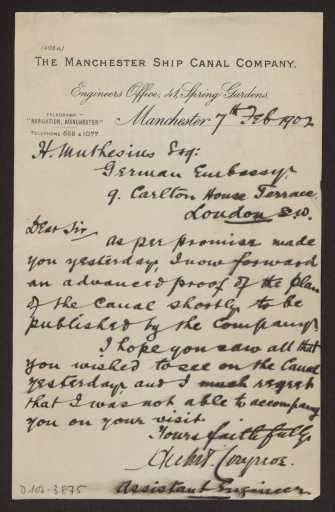 THE MANCHESTER SHIP CANAL COMPANY.
Engineers Office, 42, Spring Gardens,
TELEGRAMS
"NAVIGATION, MANCHESTER"
TELEPHONE 688 & 1077
Manchester 7th Feb 1902
H. Muthesius Esq:
German Embassy,
9. Carlton House Terrace,
London S.W.
Dear Sir,
as per promise made
you yesterday, I now forward
an advanced proof of the plan
of the Canal shortly to be
published by the Company.
I hope you saw all that
you wished to see on the Canal
yesterday, and I much regret
that I was not able to accompany
you on your visit
Yours faithfully
Assistant Engineer.
D 102-3875